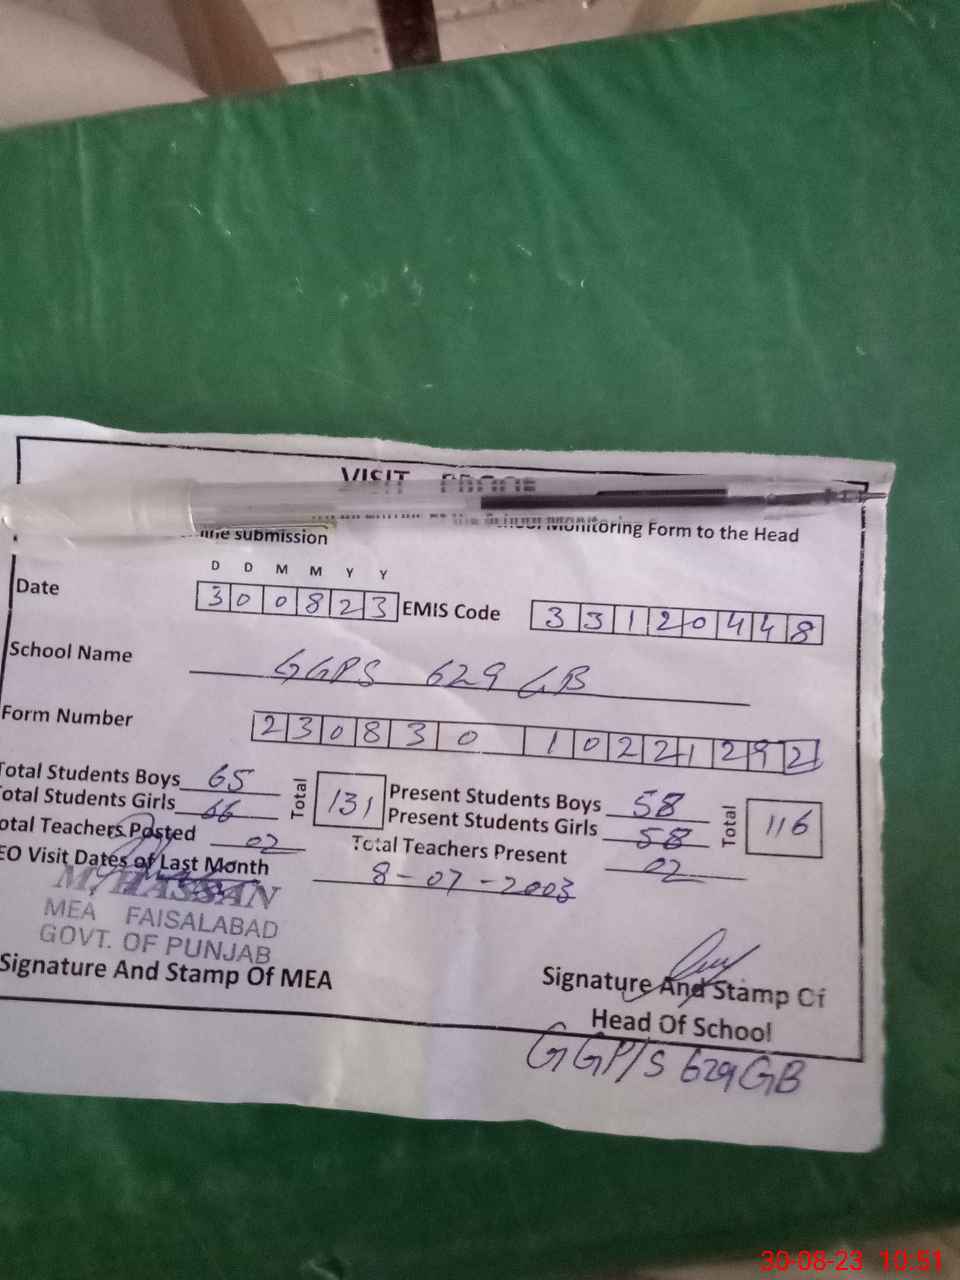 VISIT PROOF
submission Monitoring Form to the Head
D D M M Y Y
Date 3 0 0 8 2 3 EMIS Code 3 3 1 2 0 4 4 8
School Name GGPS 629 GB
Form Number 2 3 0 8 3 0 1 0 2 2 1 2 9 2
Total Students Boys 65 Total 131 Present Students Boys 58 Total 116
Total Students Girls 66 Present Students Girls 58
otal Teachers Posted 02 Total Teachers Present 02
EO Visit Dates of Last Month 8-07-2003
M. HASSAN
MEA FAISALABAD
GOVT. OF PUNJAB
Signature And Stamp Of MEA Signature And Stamp Of
Head Of School
GGP/S 629 GB
30-08-23 10:51